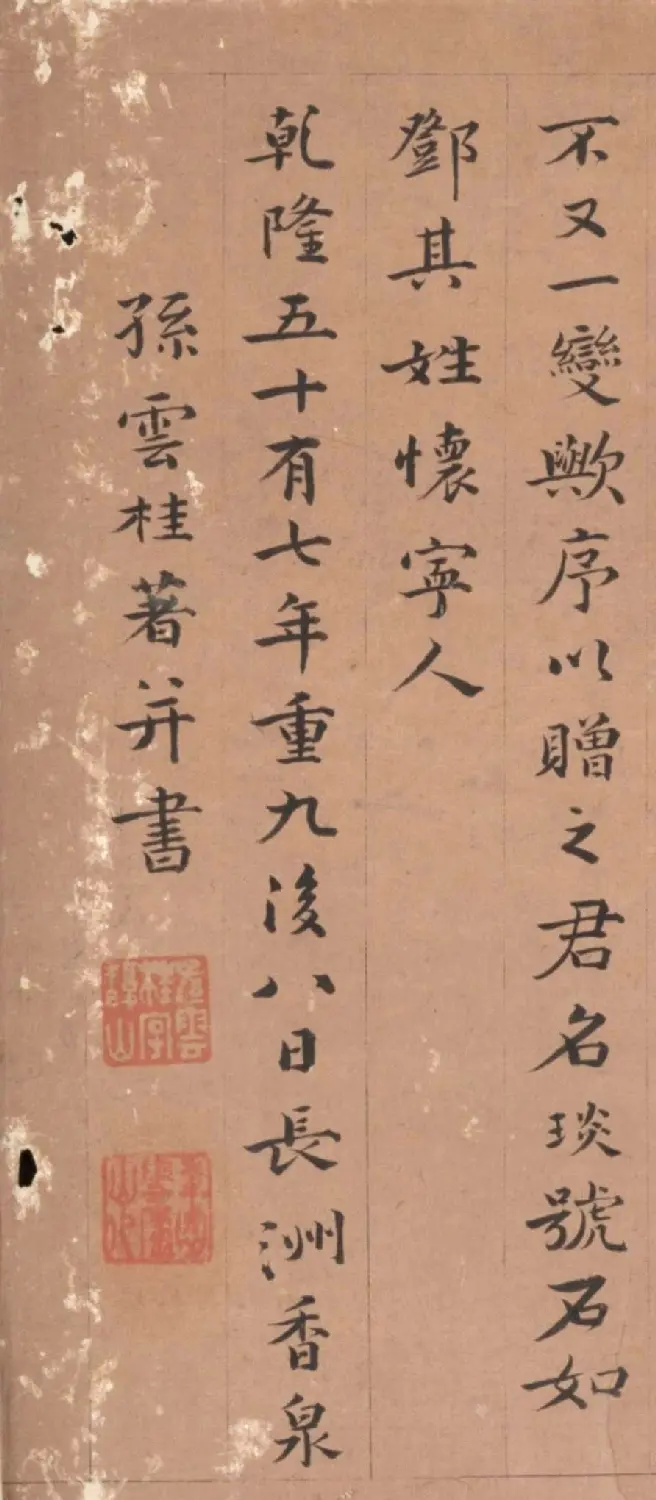 不又一變歟序以贈之君名琰號石如
鄧其姓懷寧人
乾隆五十有七年重九後八日長洲香泉
孫雲桂著并書